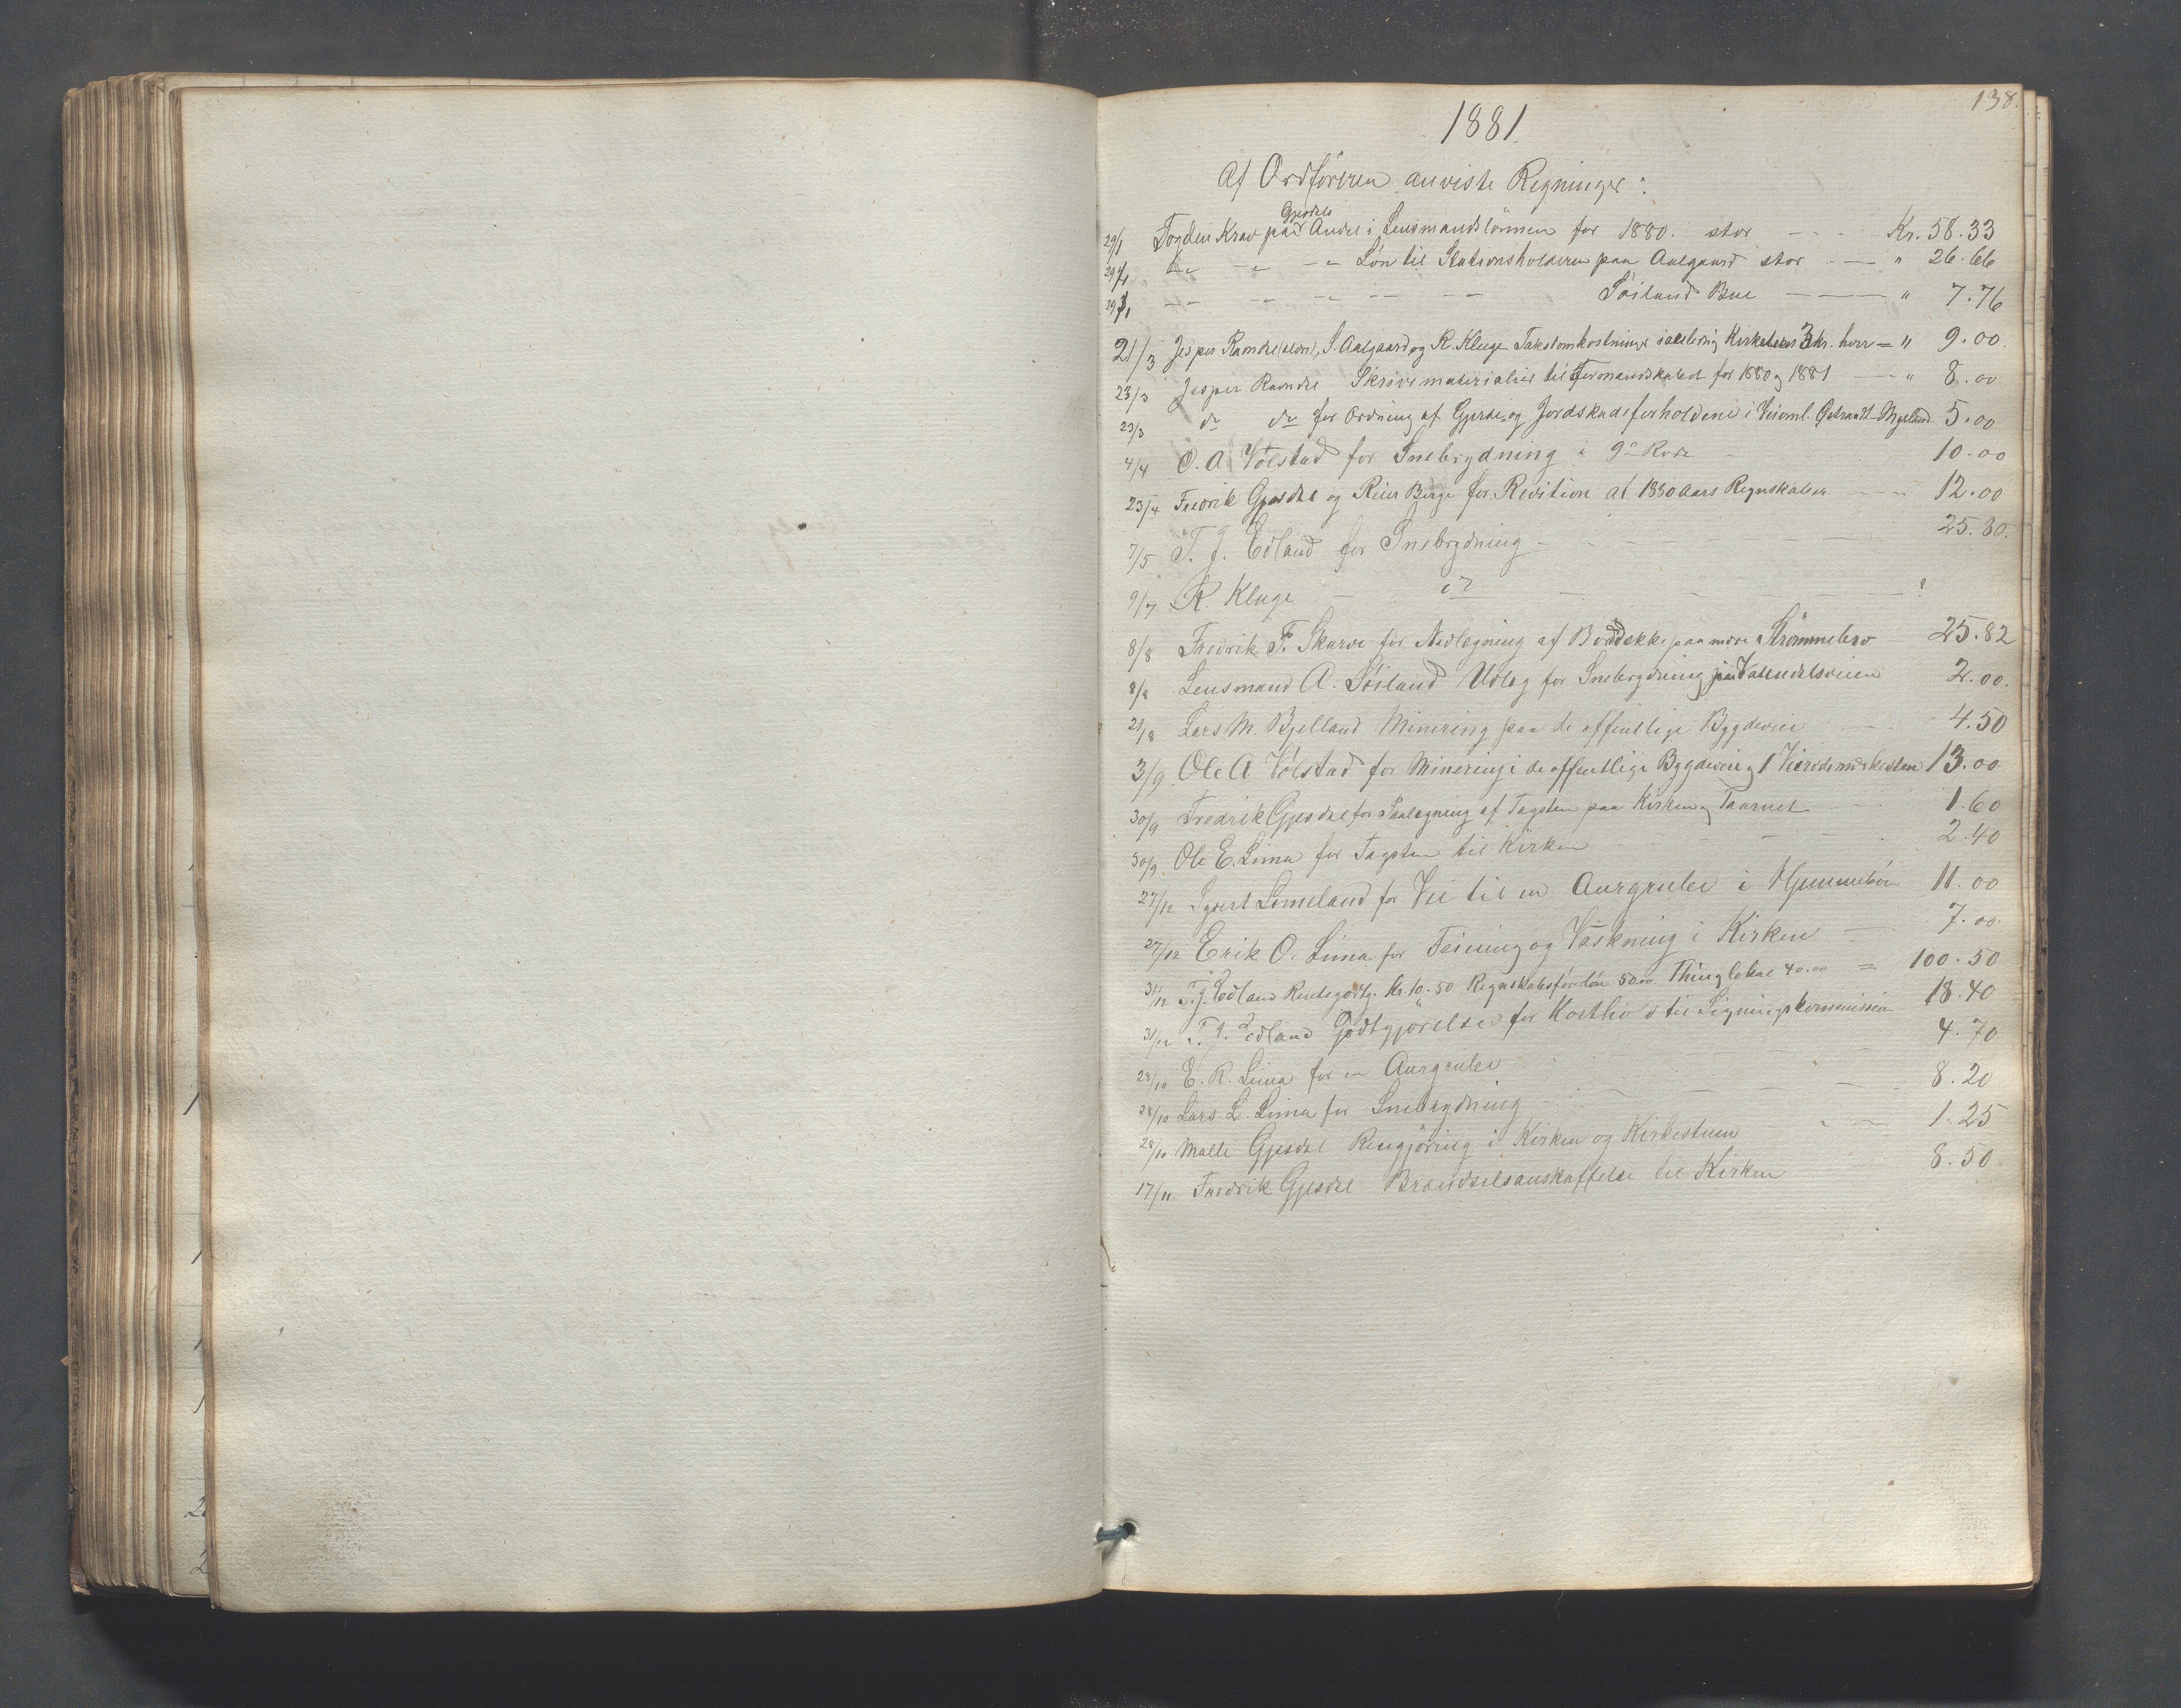 138.
1881.
Af Ordføreren anviste Regninger:
29/1 Fogden Krav paa Gjesdals Andel i Lensmandslønnen for 1880. stor - - - Kr. 58.33
29/1 -"- -"- -"- Løn til Stationsholderen paa Aalgaard stor - - " 26.66
29/1 -"- -"- -"- -"- -"- Søiland Bue - - - " 7.76
21/3 Jesper Ravndal (eldre), S. Aalgaard og R. Kluge Takstomkostninger Kirke 3 Kr. hver = " 9.00.
23/3 Jesper Ravndal Skrivematerialier til Formandskabet for 1880 og 1881 - - " 8.00
23/3 do do for Ordning af Gjerde og Jordskadeforholdene i Veianl. Mjeland 5.00
4/4 O. A. Volstad for Snebrydning i 9de Rode - 10.00
23/4 Fredrik Gjesdal og Reier Berge for Revition af 1880 Aars Regnskaber - - 12.00
7/5 T. J. Edland for Snebrydning - - - - 25.80.
9/7 R. Kluge - do - - - - ?
8/8 Fredrik T. Skurve for Nedlægning af Borddække paa Strømmebro 25.82
8/8 Lensmand A. Søiland Udlæg for Snebrydning paa 2.00.
21/8 Lars M. Bjelland Minering paa de offentlige Bygdeveie - - 4.50
3/9 Ole A Volstad for Minering i de offentlige Bygdeveie og 1 13.00
30/9 Fredrik Gjesdal for Paalægning af Tagsten paa Kirken og Taarnet - - 1.60
30/9. Ole E. Lima for Tagsten til Kirken - - - 2.40
27/12 Sjvert Limeland for Vei til en Aurgrube i 11.00
27/12 Erik O. Lima for Feining og Vaskning i Kirken - 7.00.
31/12 T. J. Edland Rentegodtg. Kr. 10.50 Regnskabsførerløn 50.00 Thinglokal 40.00 = 100.50
31/12 T. J. Edland Godtgjørelse for Kosthold til Ligningskommissionen 18.40
28/10 E. R. Lima for en Aurgrube - - - 4.70
28/10 Lars L. Lima for Snebrydning - - - - 8.20
28/10 Malli Gjesdal Rengjøring i Kirken og Kirkestuen - - 1.25
17/11 Fredrik Gjesdal Brændselsanskaffelse til Kirken 8.50